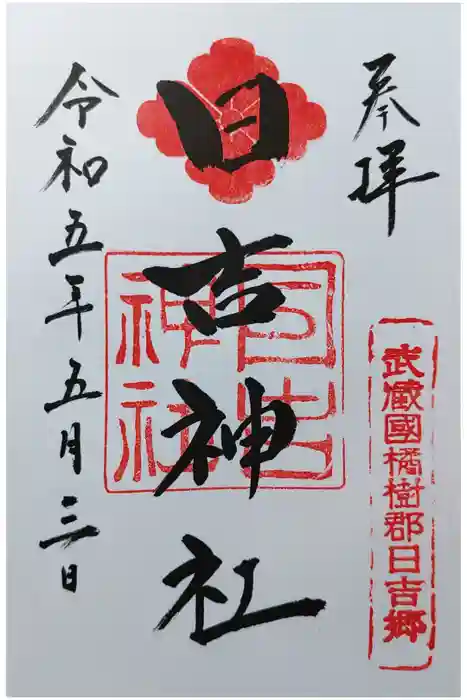 奉拝
武蔵國橘樹郡日吉郷
日吉神社
日吉神社
令和五年五月三日